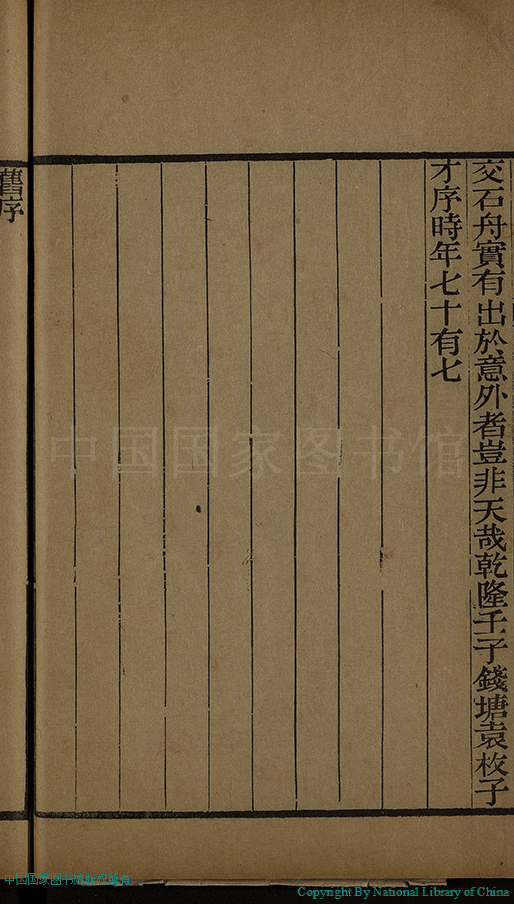 交石舟實有出於意外者豈非天哉乾隆壬子錢塘袁枚子
才序時年七十有七
舊序
中国国家图书馆
中国国家图书馆版权所有
Copyright By National Library of China